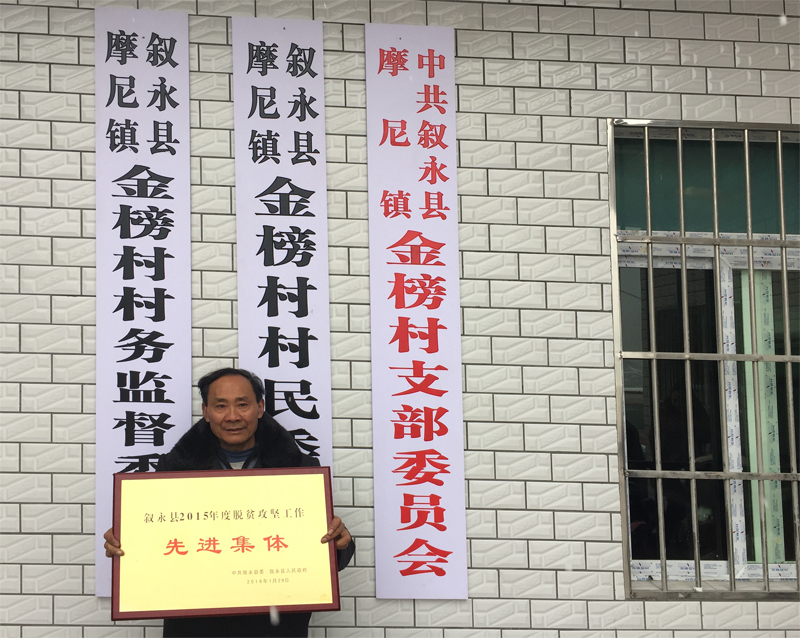 叙永县
摩尼镇
金榜村村务监督委
叙永县
摩尼镇
金榜村村民委
中共叙永县
摩尼镇
金榜村支部委员会
叙永县2015年度脱贫攻坚工作
先进集体
中共叙永县委 叙永县人民政府
2016年1月20日